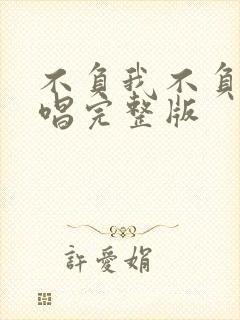 不負我不負
唱完整版
許愛娟